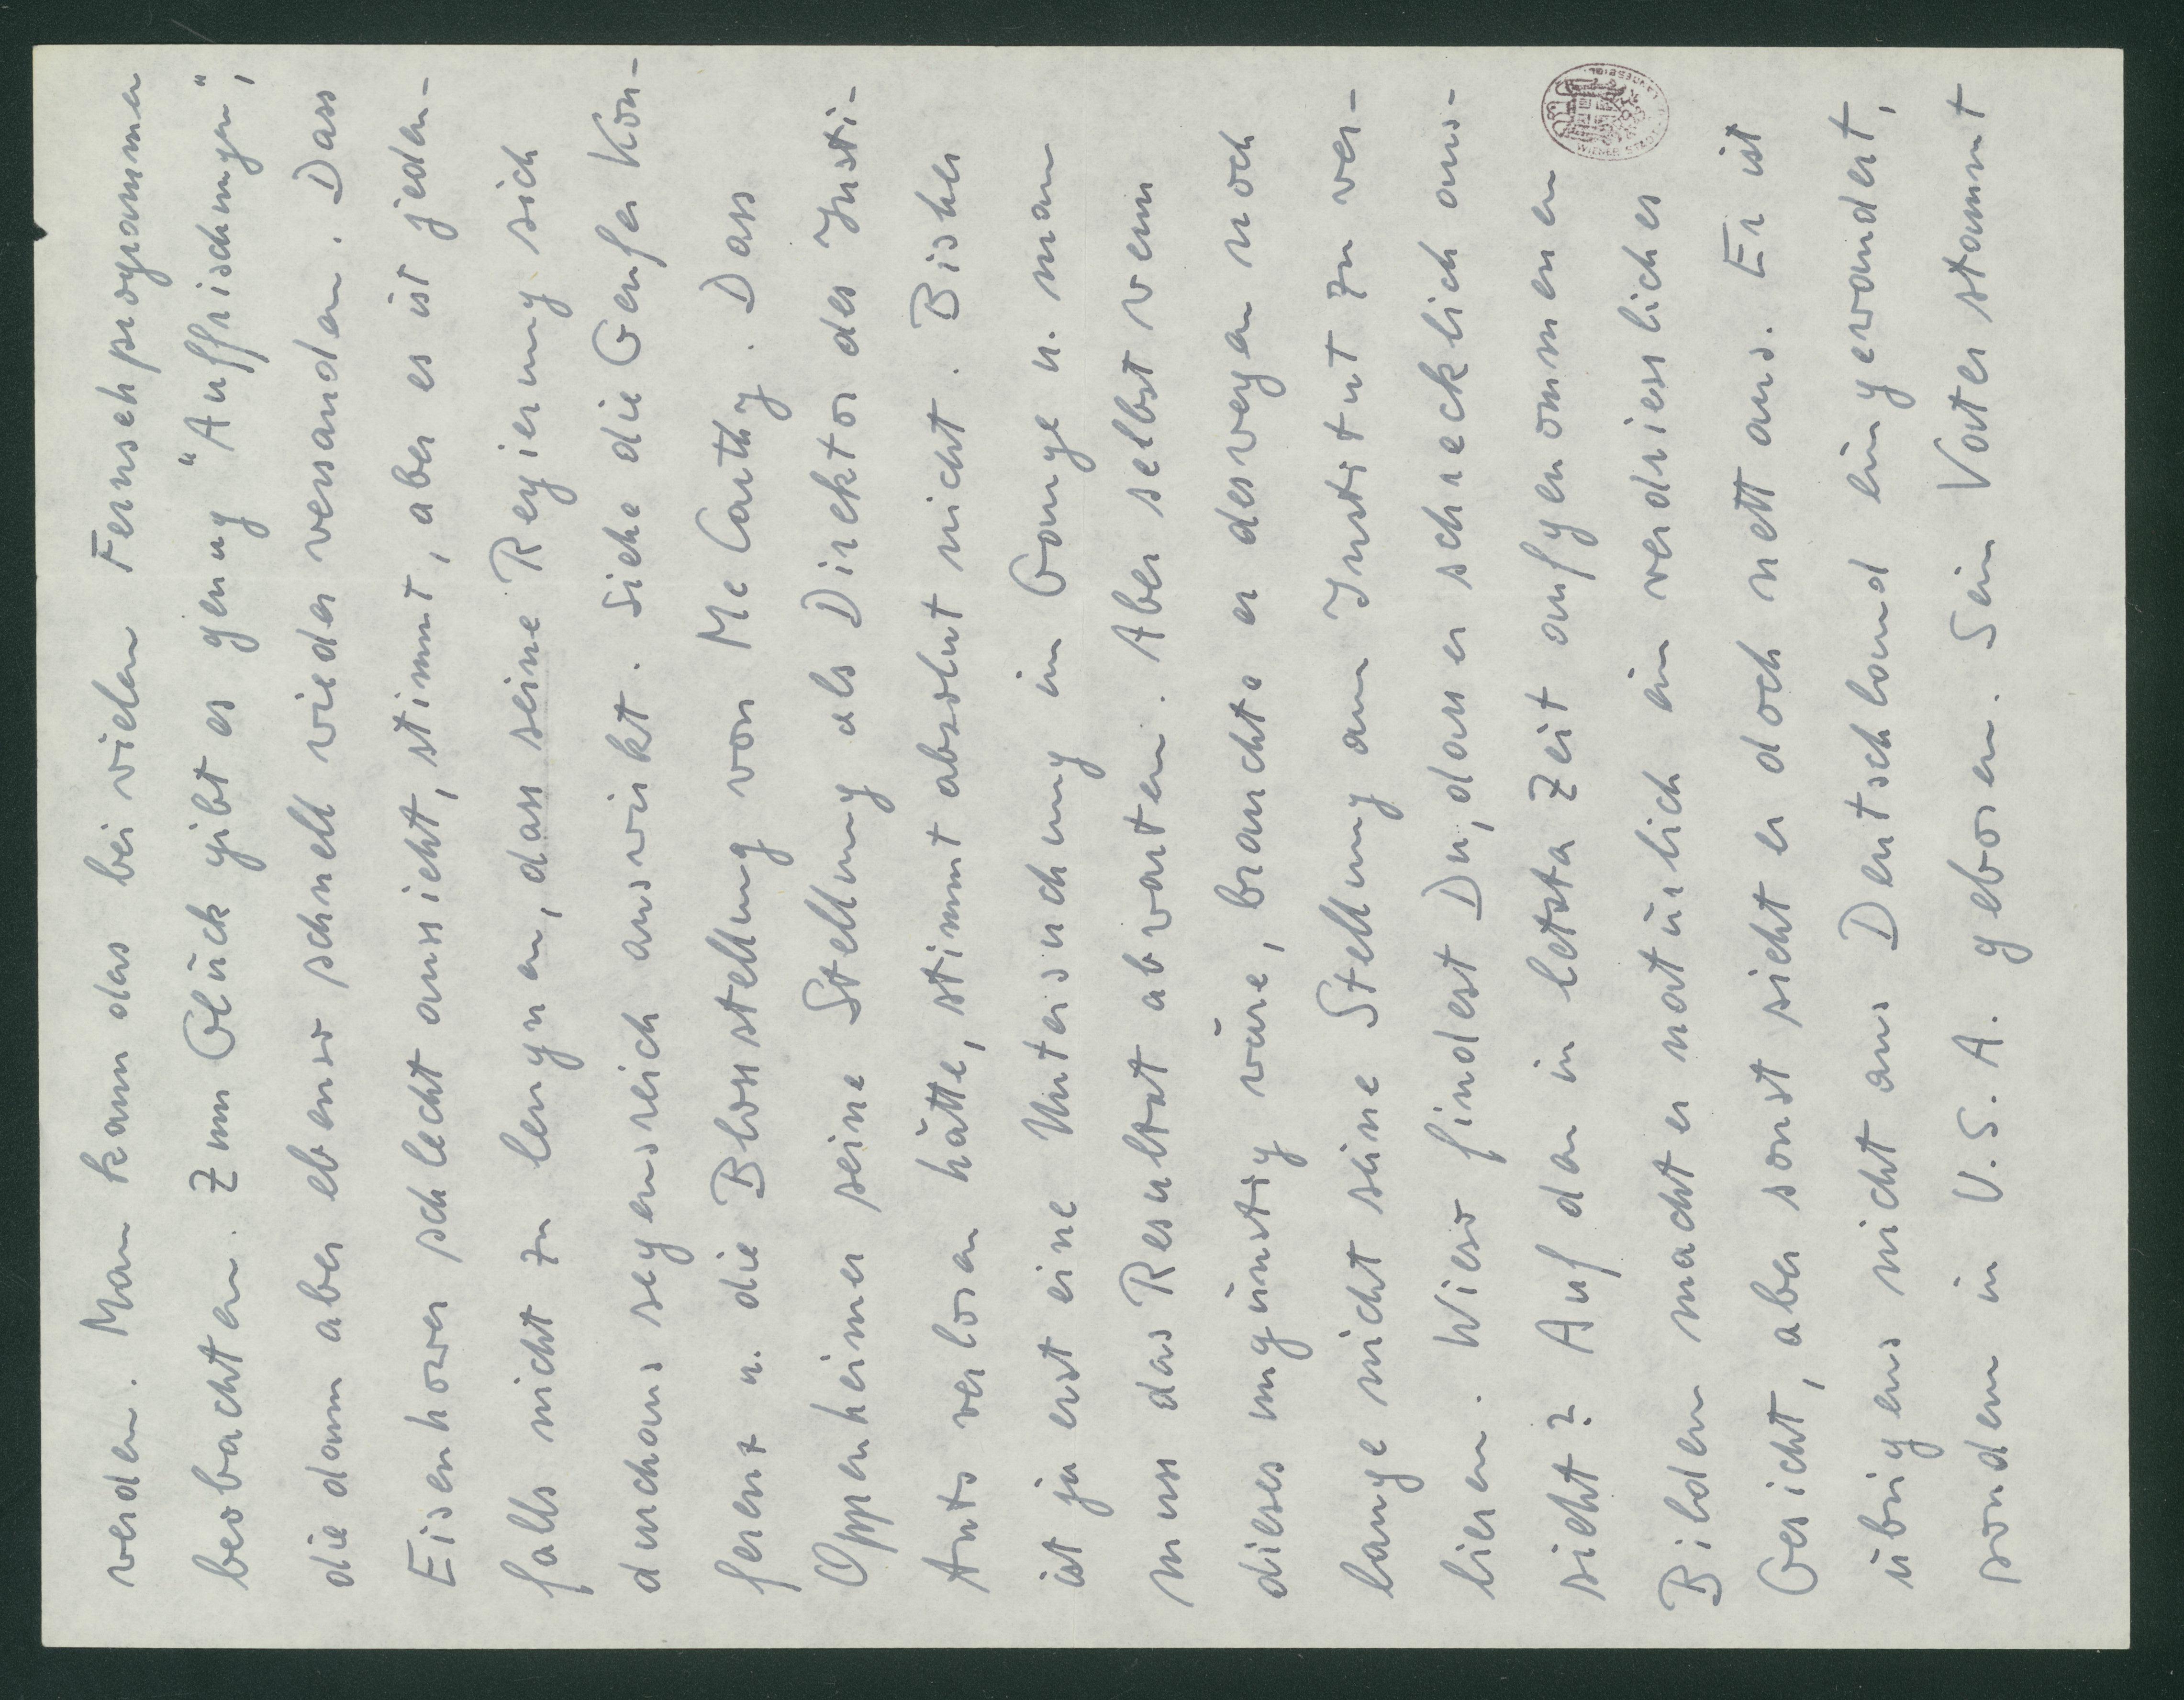 werden. Man kann das bei vielen Fernsehprogrammen
beobachten. Zum Glück gibt es genug "Auffrischungen",
die dann aber ebenso schnell wieder versanden. Dass
Eisenhower schlecht aussieht, stimmt, aber es ist jeden-
falls nicht zu leugnen, dass seine Regierung sich
durchaus segensreich auswirkt. Siehe die Genfer Kon-
ferenz u. die Blosstellung von Mc Carthy. Dass
Oppenheimer seine Stellung als Direktor des Insti-
tuts verloren hätte, stimmt absolut nicht. Bisher
ist ja erst eine Untersuchung im Gange u. man
muss das Resultat abwarten. Aber selbst wenn
dieses ungünstig wäre, brauchte er deswegen noch
lange nicht seine Stellung am Institut zu ver-
lieren. Wieso findest Du, dass er schrecklich aus-
sieht? Auf den in letzter Zeit aufgenommenen
Bildern macht er natürlich ein verdriessliches
Gesicht, aber sonst sieht er doch nett aus. Er ist
übrigens nicht aus Deutschland eingewandert,
sondern in U.S.A. geboren. Sein Vater stammt
WIENER STADT- U. LANDESBIBL.